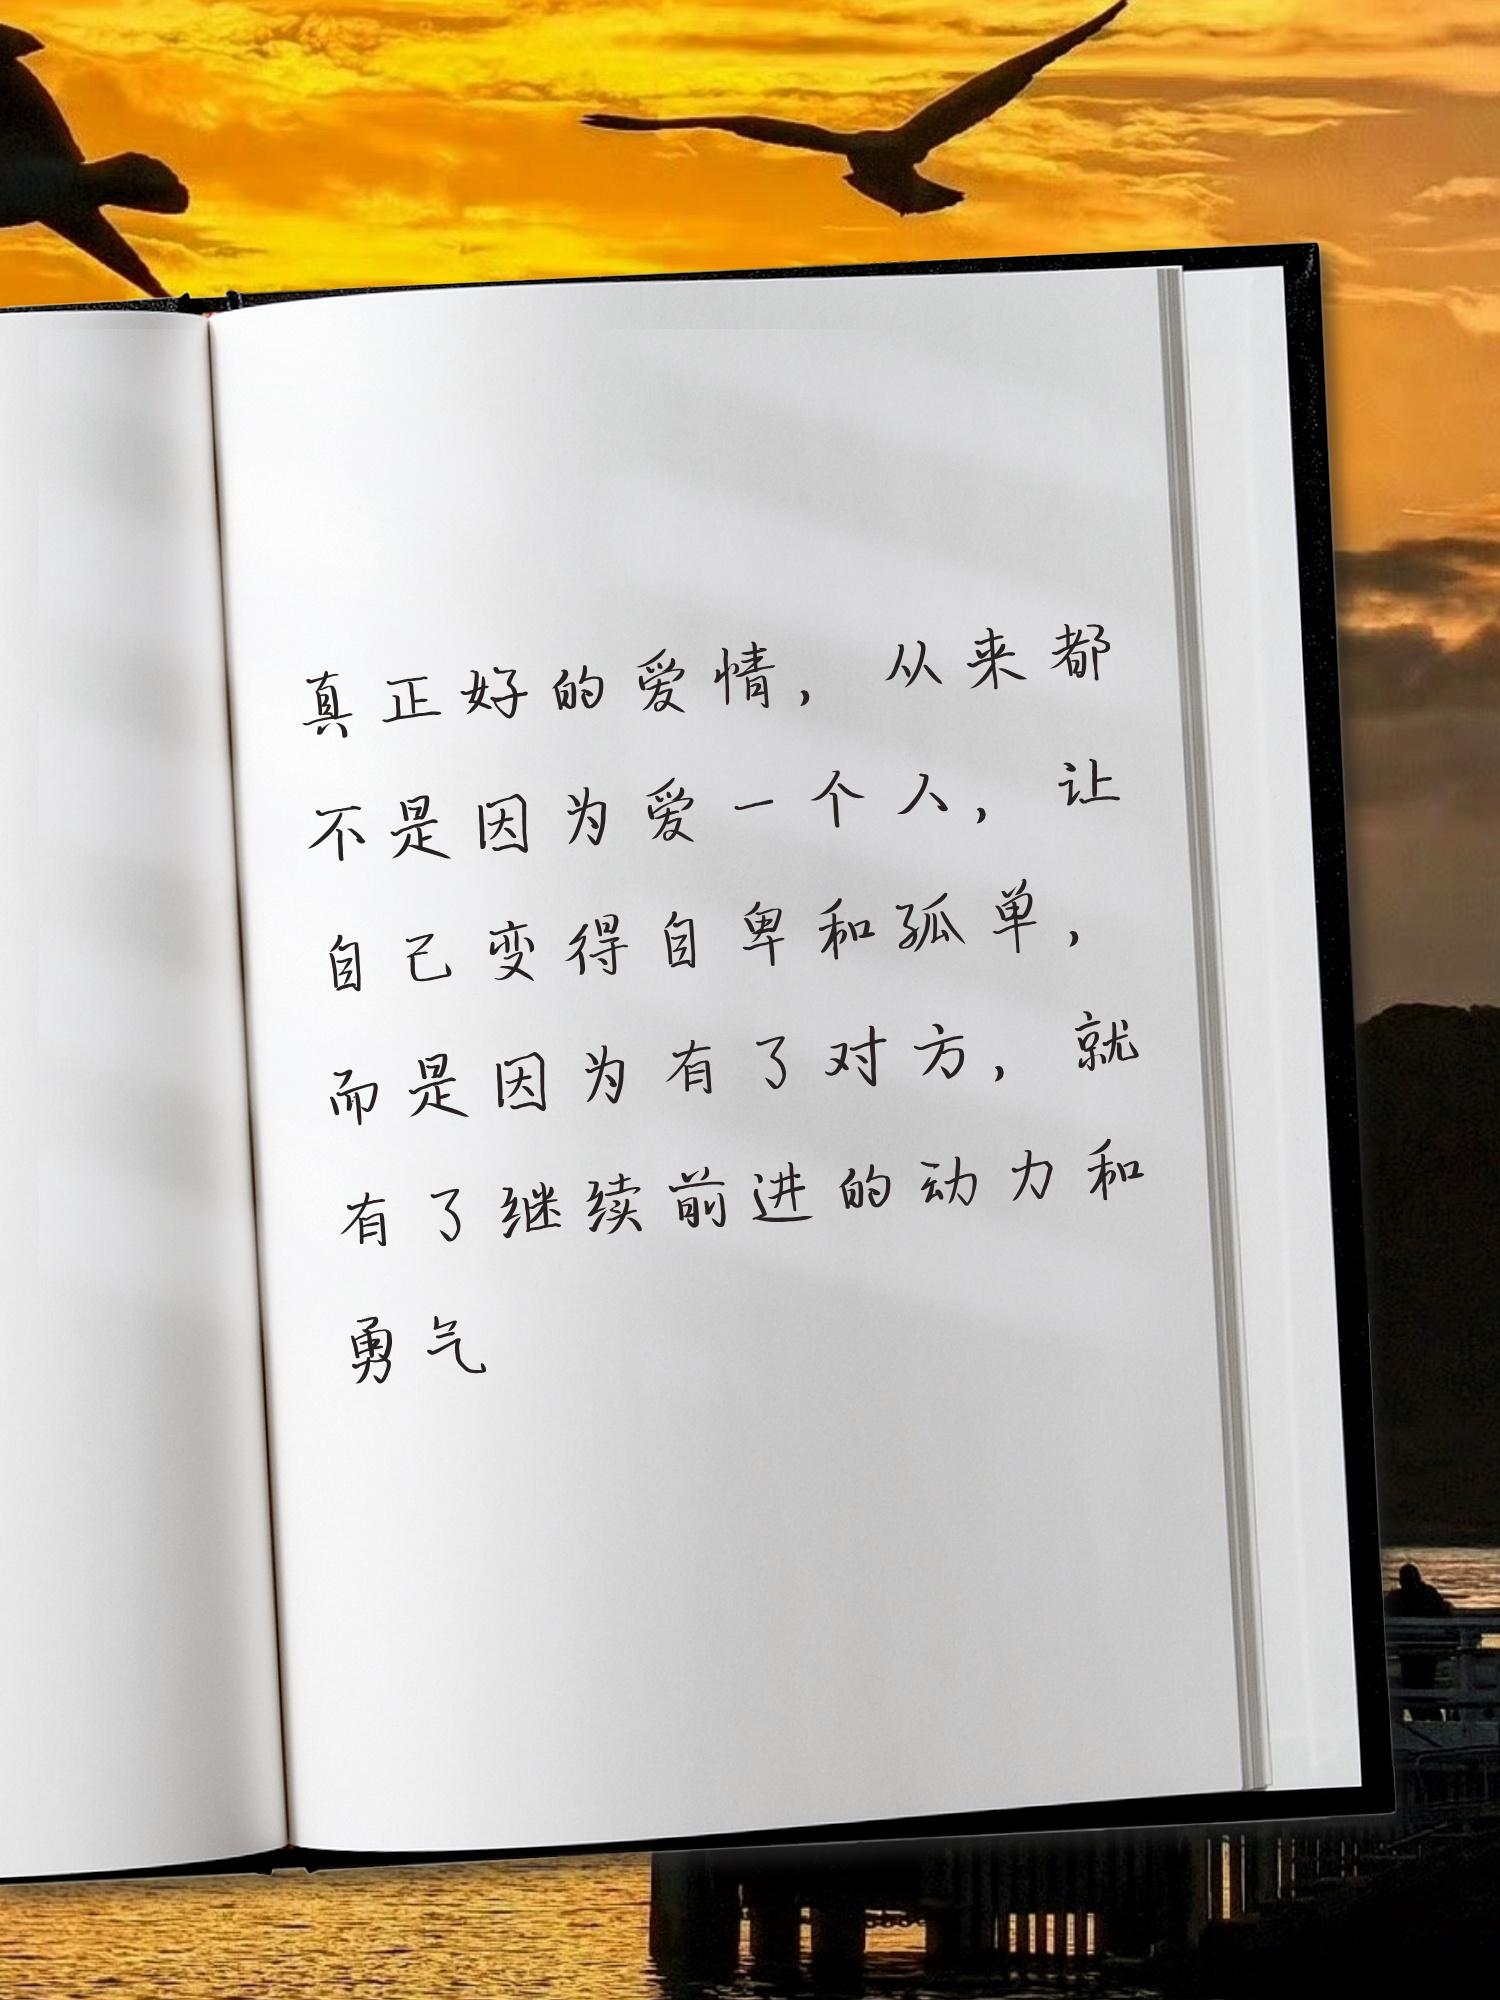 真正好的爱情，从来都
不是因为爱一个人，让
自己变得自卑和孤单，
而是因为有了对方，就
有了继续前进的动力和
勇气